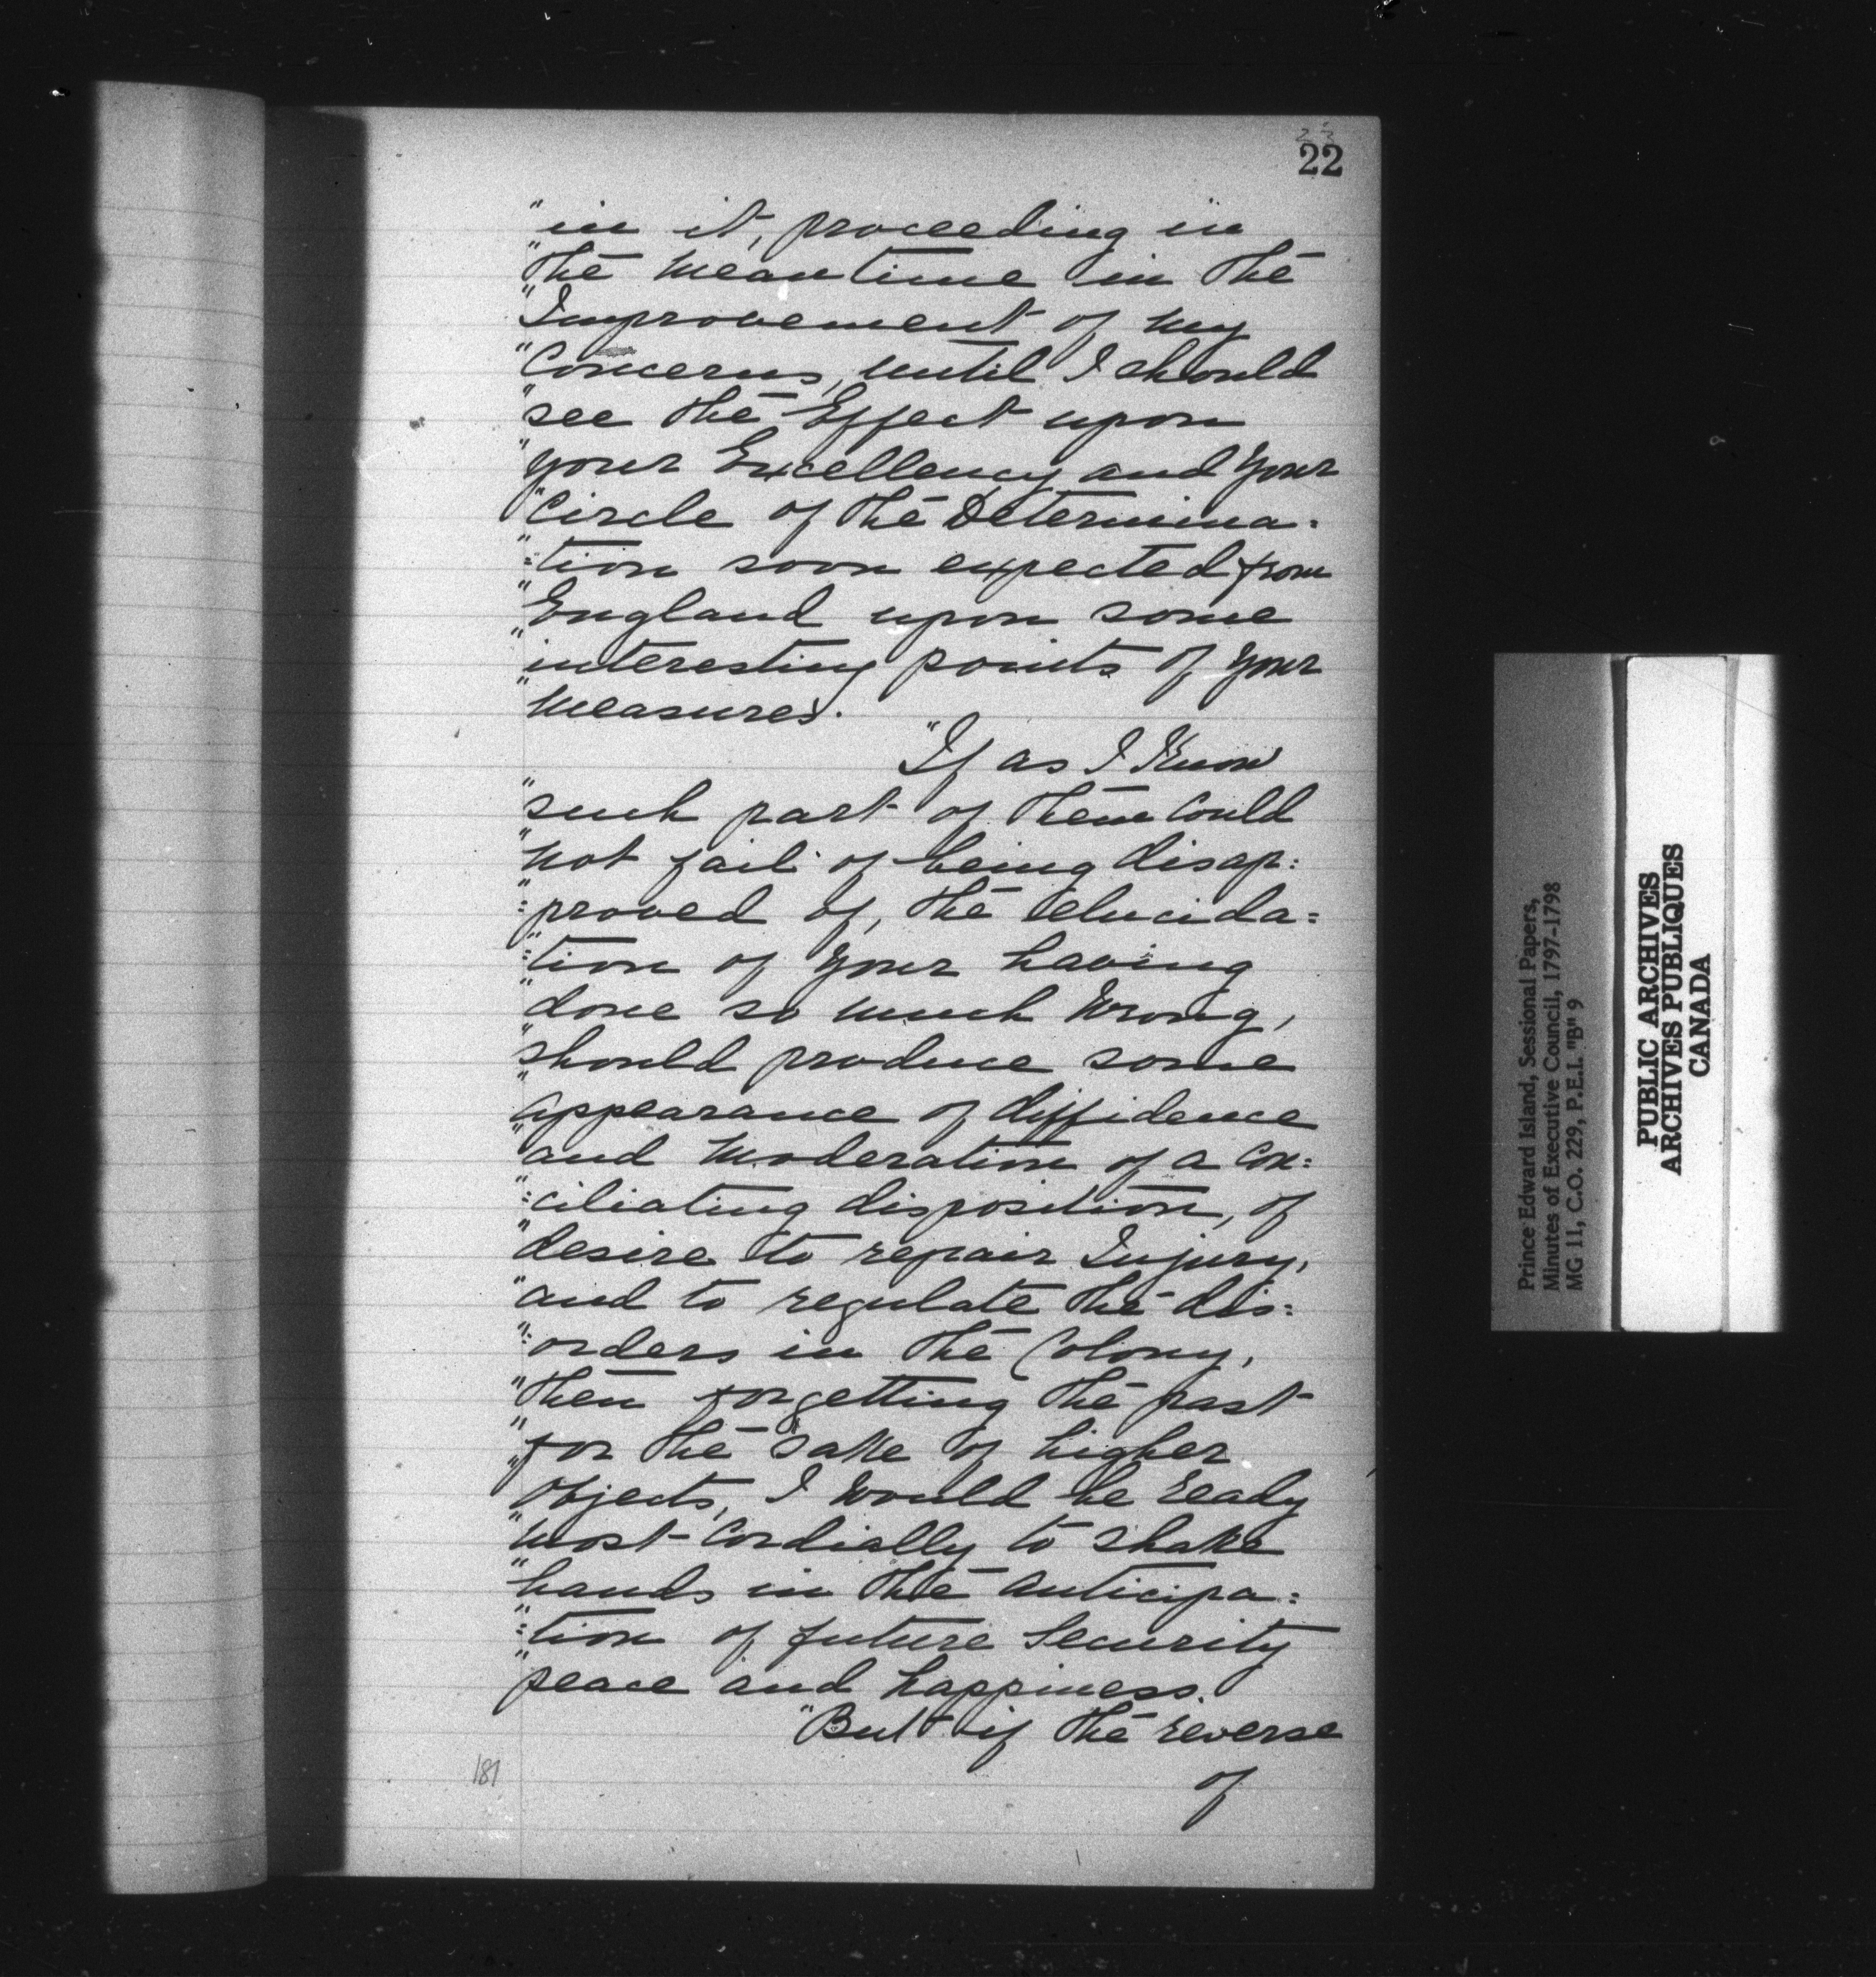 23
22
"in it, proceeding in
"the meantime in the
"Improvement of my
"Concerns, until I should
"see the Effect upon
"your Excellency and Your
"Circle of the Determina=
"=tion soon expected from
"England upon some
"interesting points of Your
"Measures.
"If as I Know
"such part of them Could
"not fail of being disap=
"=proved of, the elucida=
"=tion of Your having
"done so much Wrong,
"should produce some
"appearance of diffidence
"and Moderation of a Con=
"=ciliating disposition, of
"desire to repair Injury,
"and to regulate the dis=
"=orders in the Colony,
"then forgetting the past
"for the sake of higher
"Objects, I Would be ready
"most Cordially to shake
"hands in the Anticipa=
"=tion of future Security
"peace and happiness.
"But if the reverse
of
181
Prince Edward Island, Sessional Papers,
Minutes of Executive Council, 1797-1798
MG 11, C.O. 229, P.E.I. "B" 9
PUBLIC ARCHIVES
ARCHIVES PUBLIQUES
CANADA